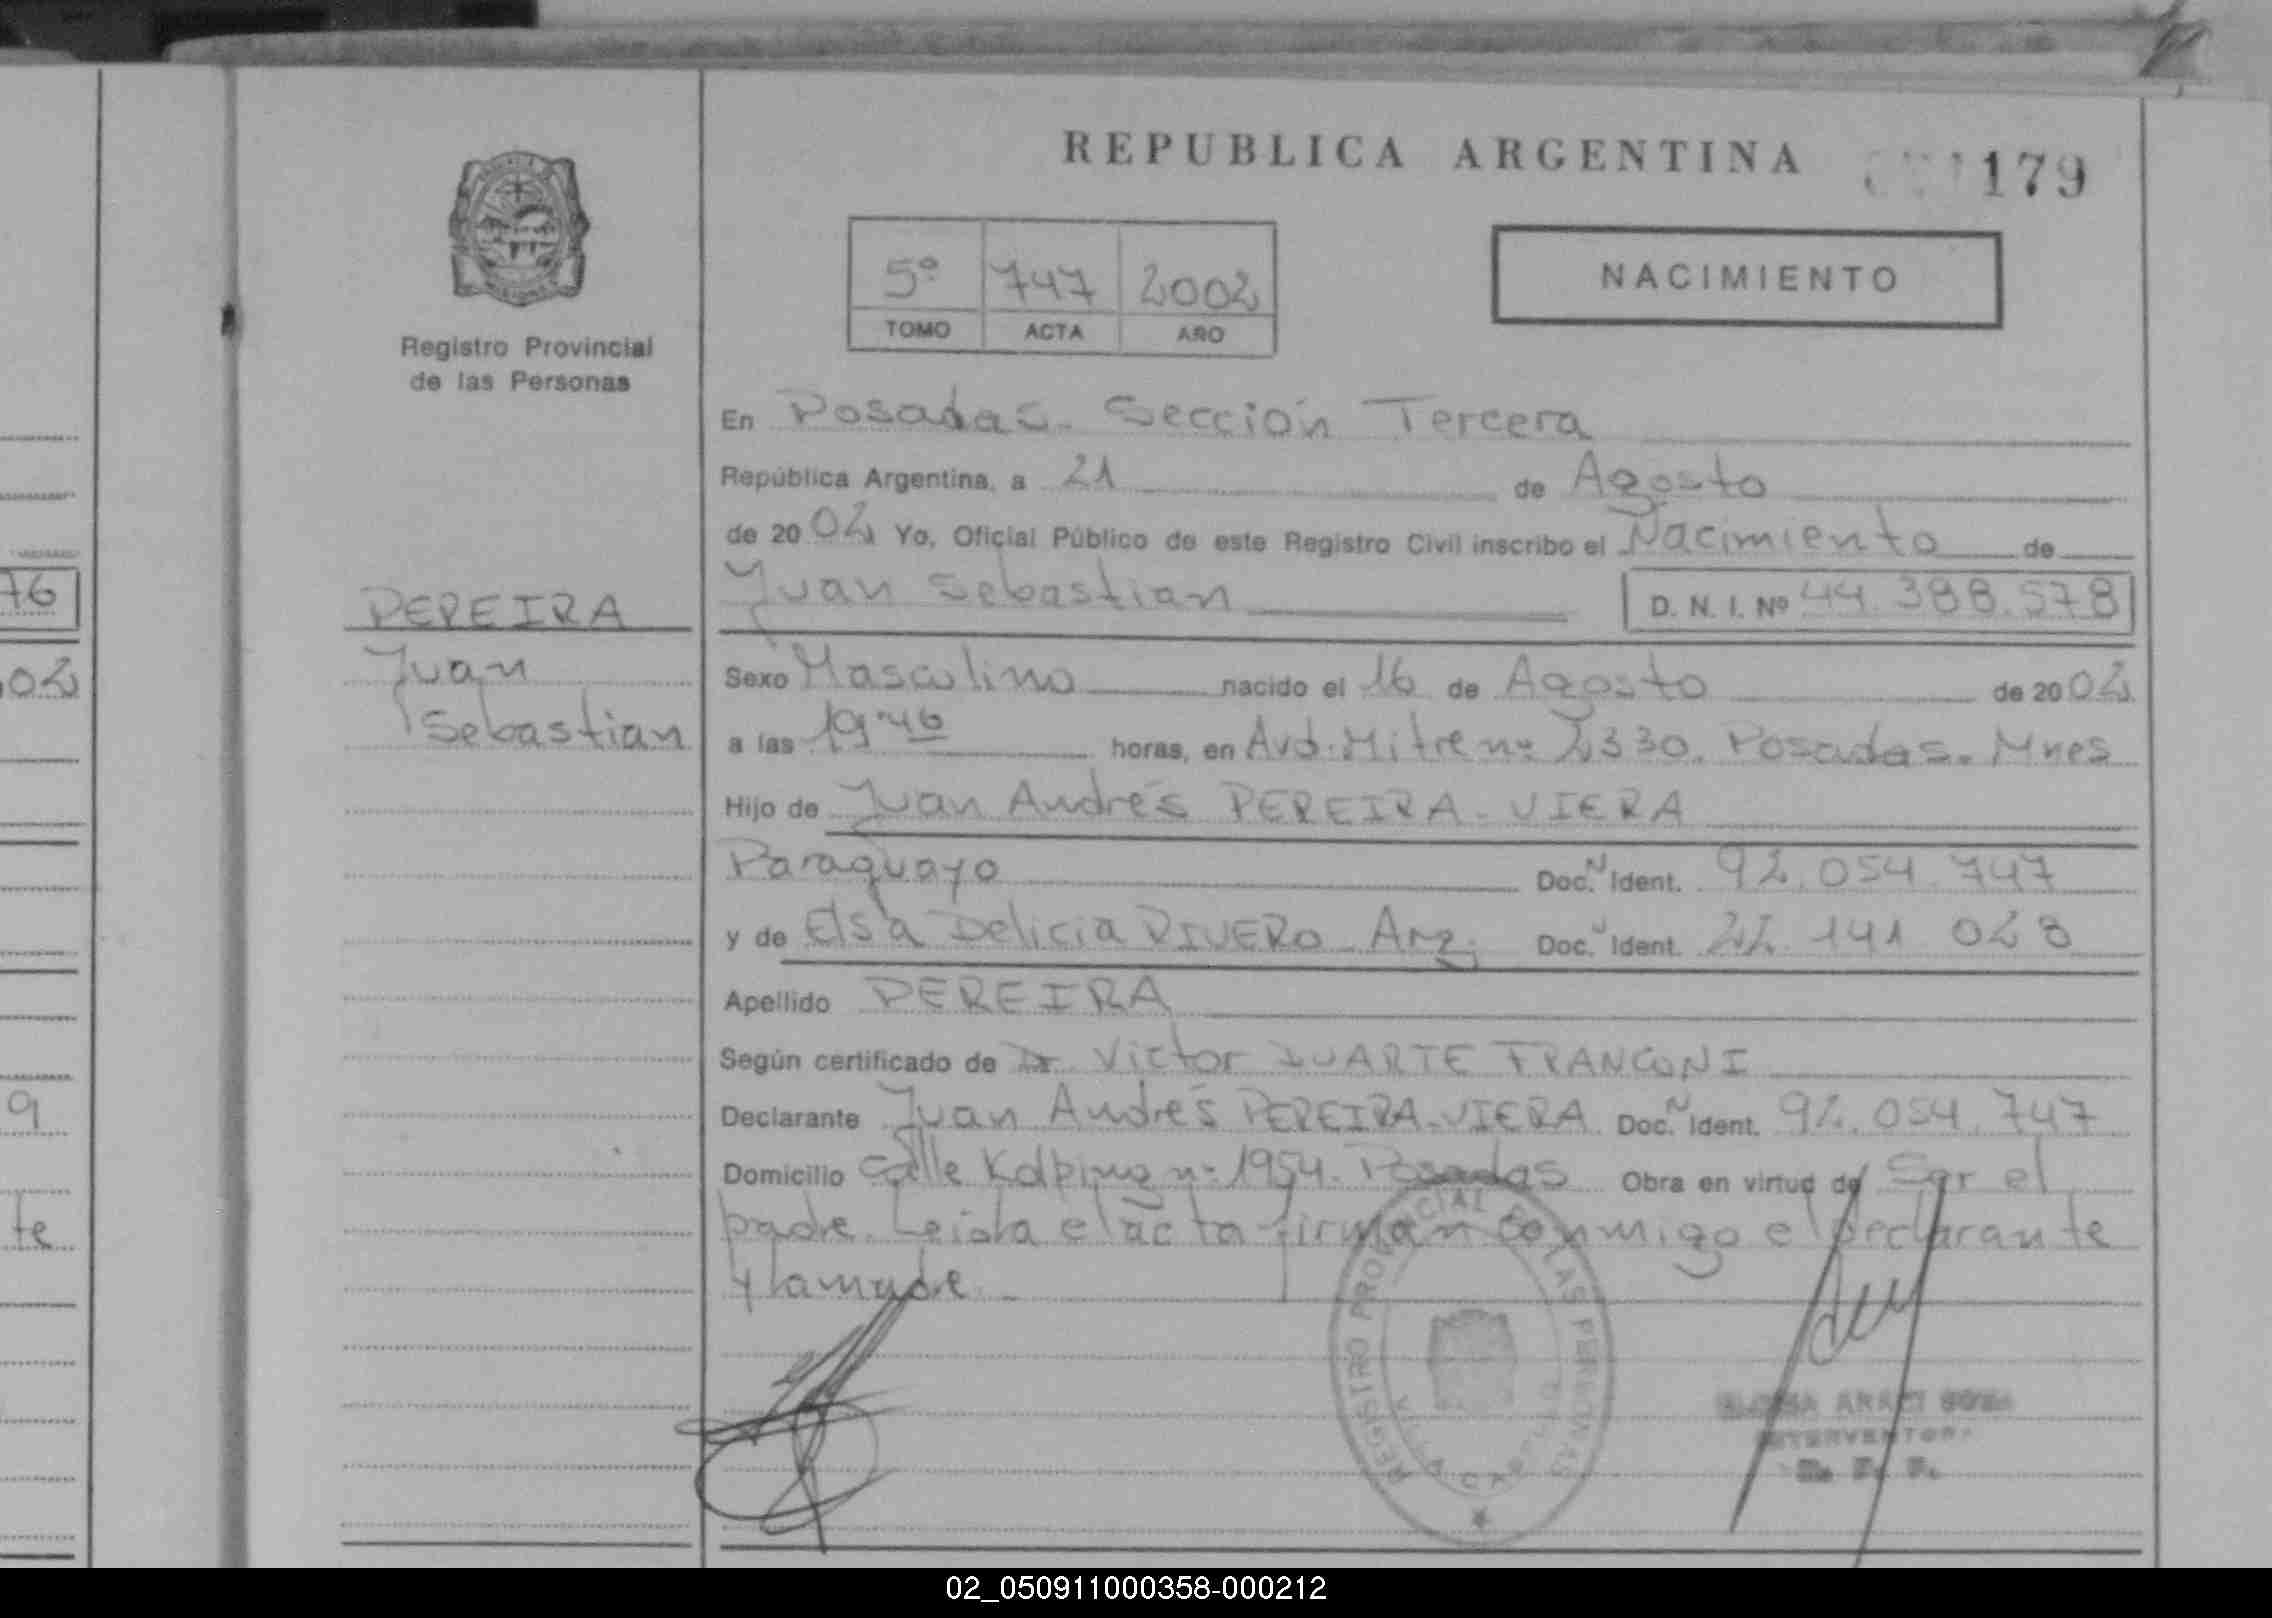 REPUBLICA ARGENTINA
179
5º 747 2002
TOMO ACTA AÑO
NACIMIENTO
Registro Provincial
de las Personas
En Posadas. Sección Tercera
República Argentina, a 21 de Agosto
de 2002 Yo, Oficial Público de este Registro Civil inscribo el Nacimiento de
Juan Sebastian D. N. I. Nº 44.388.578
PEREIRA
Juan
Sebastian
Sexo Masculino nacido el 16 de Agosto de 2002
a las 19:46 horas, en Avd. Mitre nº 2330. Posadas. Mnes
Hijo de Juan Andrés PEREIRA-VIERA
Paraguayo Doc. N Ident. 92.054.747
y de Elsa Delicia RIVERO Arg. Doc. N Ident. 22.141.028
Apellido PEREIRA
Según certificado de Dr. Victor DUARTE FRANCONI
Declarante Juan Andrés PEREIRA-VIERA Doc. N Ident. 92.054.747
Domicilio Calle Kolping nº 1954. Posadas Obra en virtud de Ser el
padre. Leida el acta firman conmigo el declarante
y la madre.
REGISTRO PROVINCIAL DE LAS PERSONAS
INTERVENTORA
76
02
9
te
02_050911000358-000212